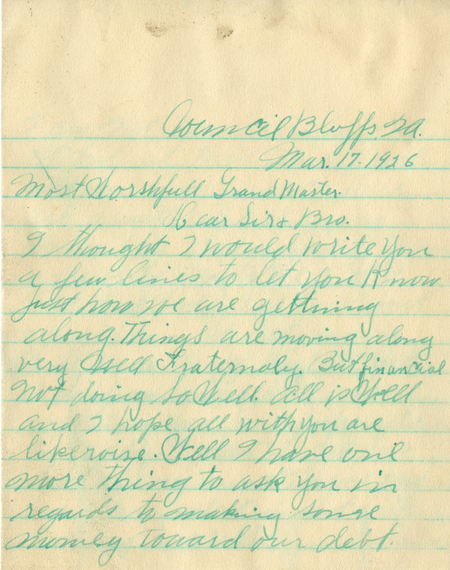 Council Bluffs Ia.
Mar. 17. 1926
Most Worshfull Grand Master.
Dear Sir & Bro.
I thought I would write you
a few lines to let you know
just how we are gettning
along. Things are moving along
very Well Fraternaly. But financial
not doing so Well. All is Well
and I hope all with you are
likewise. Well I have one
more thing to ask you in
regards to making some
money toward our debt.